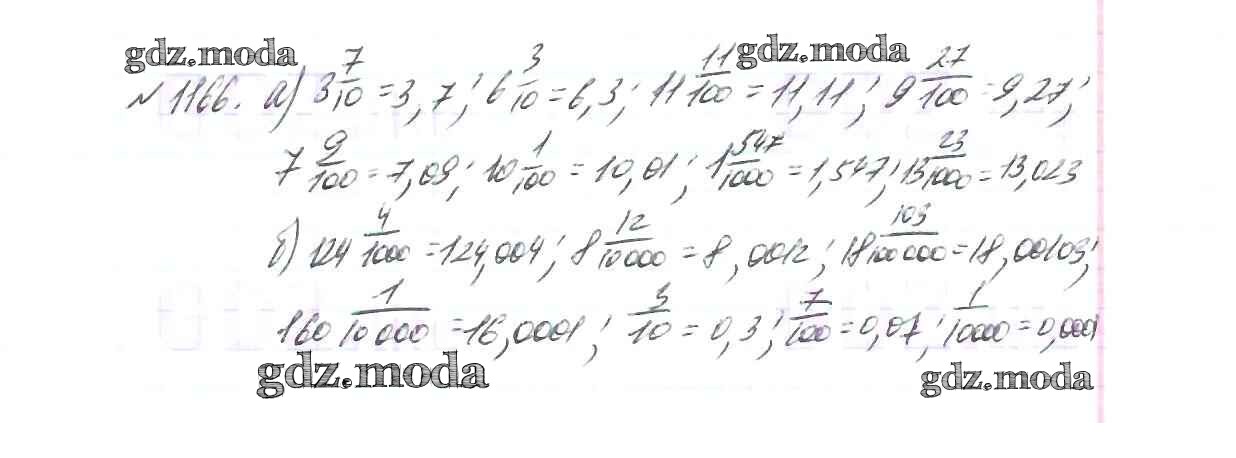 gdz.moda gdz.moda
№ 1166. а) 3 7/10 = 3,7; 6 3/10 = 6,3; 11 11/100 = 11,11; 9 27/100 = 9,27;
7 9/100 = 7,09; 10 1/100 = 10,01; 1 547/1000 = 1,547; 13 23/1000 = 13,023
б) 124 4/1000 = 124,004; 8 12/10 000 = 8,0012; 18 103/100 000 = 18,00103;
160 1/10 000 = 16,0001; 3/10 = 0,3; 7/100 = 0,07; 1/10000 = 0,0001
gdz.moda gdz.moda